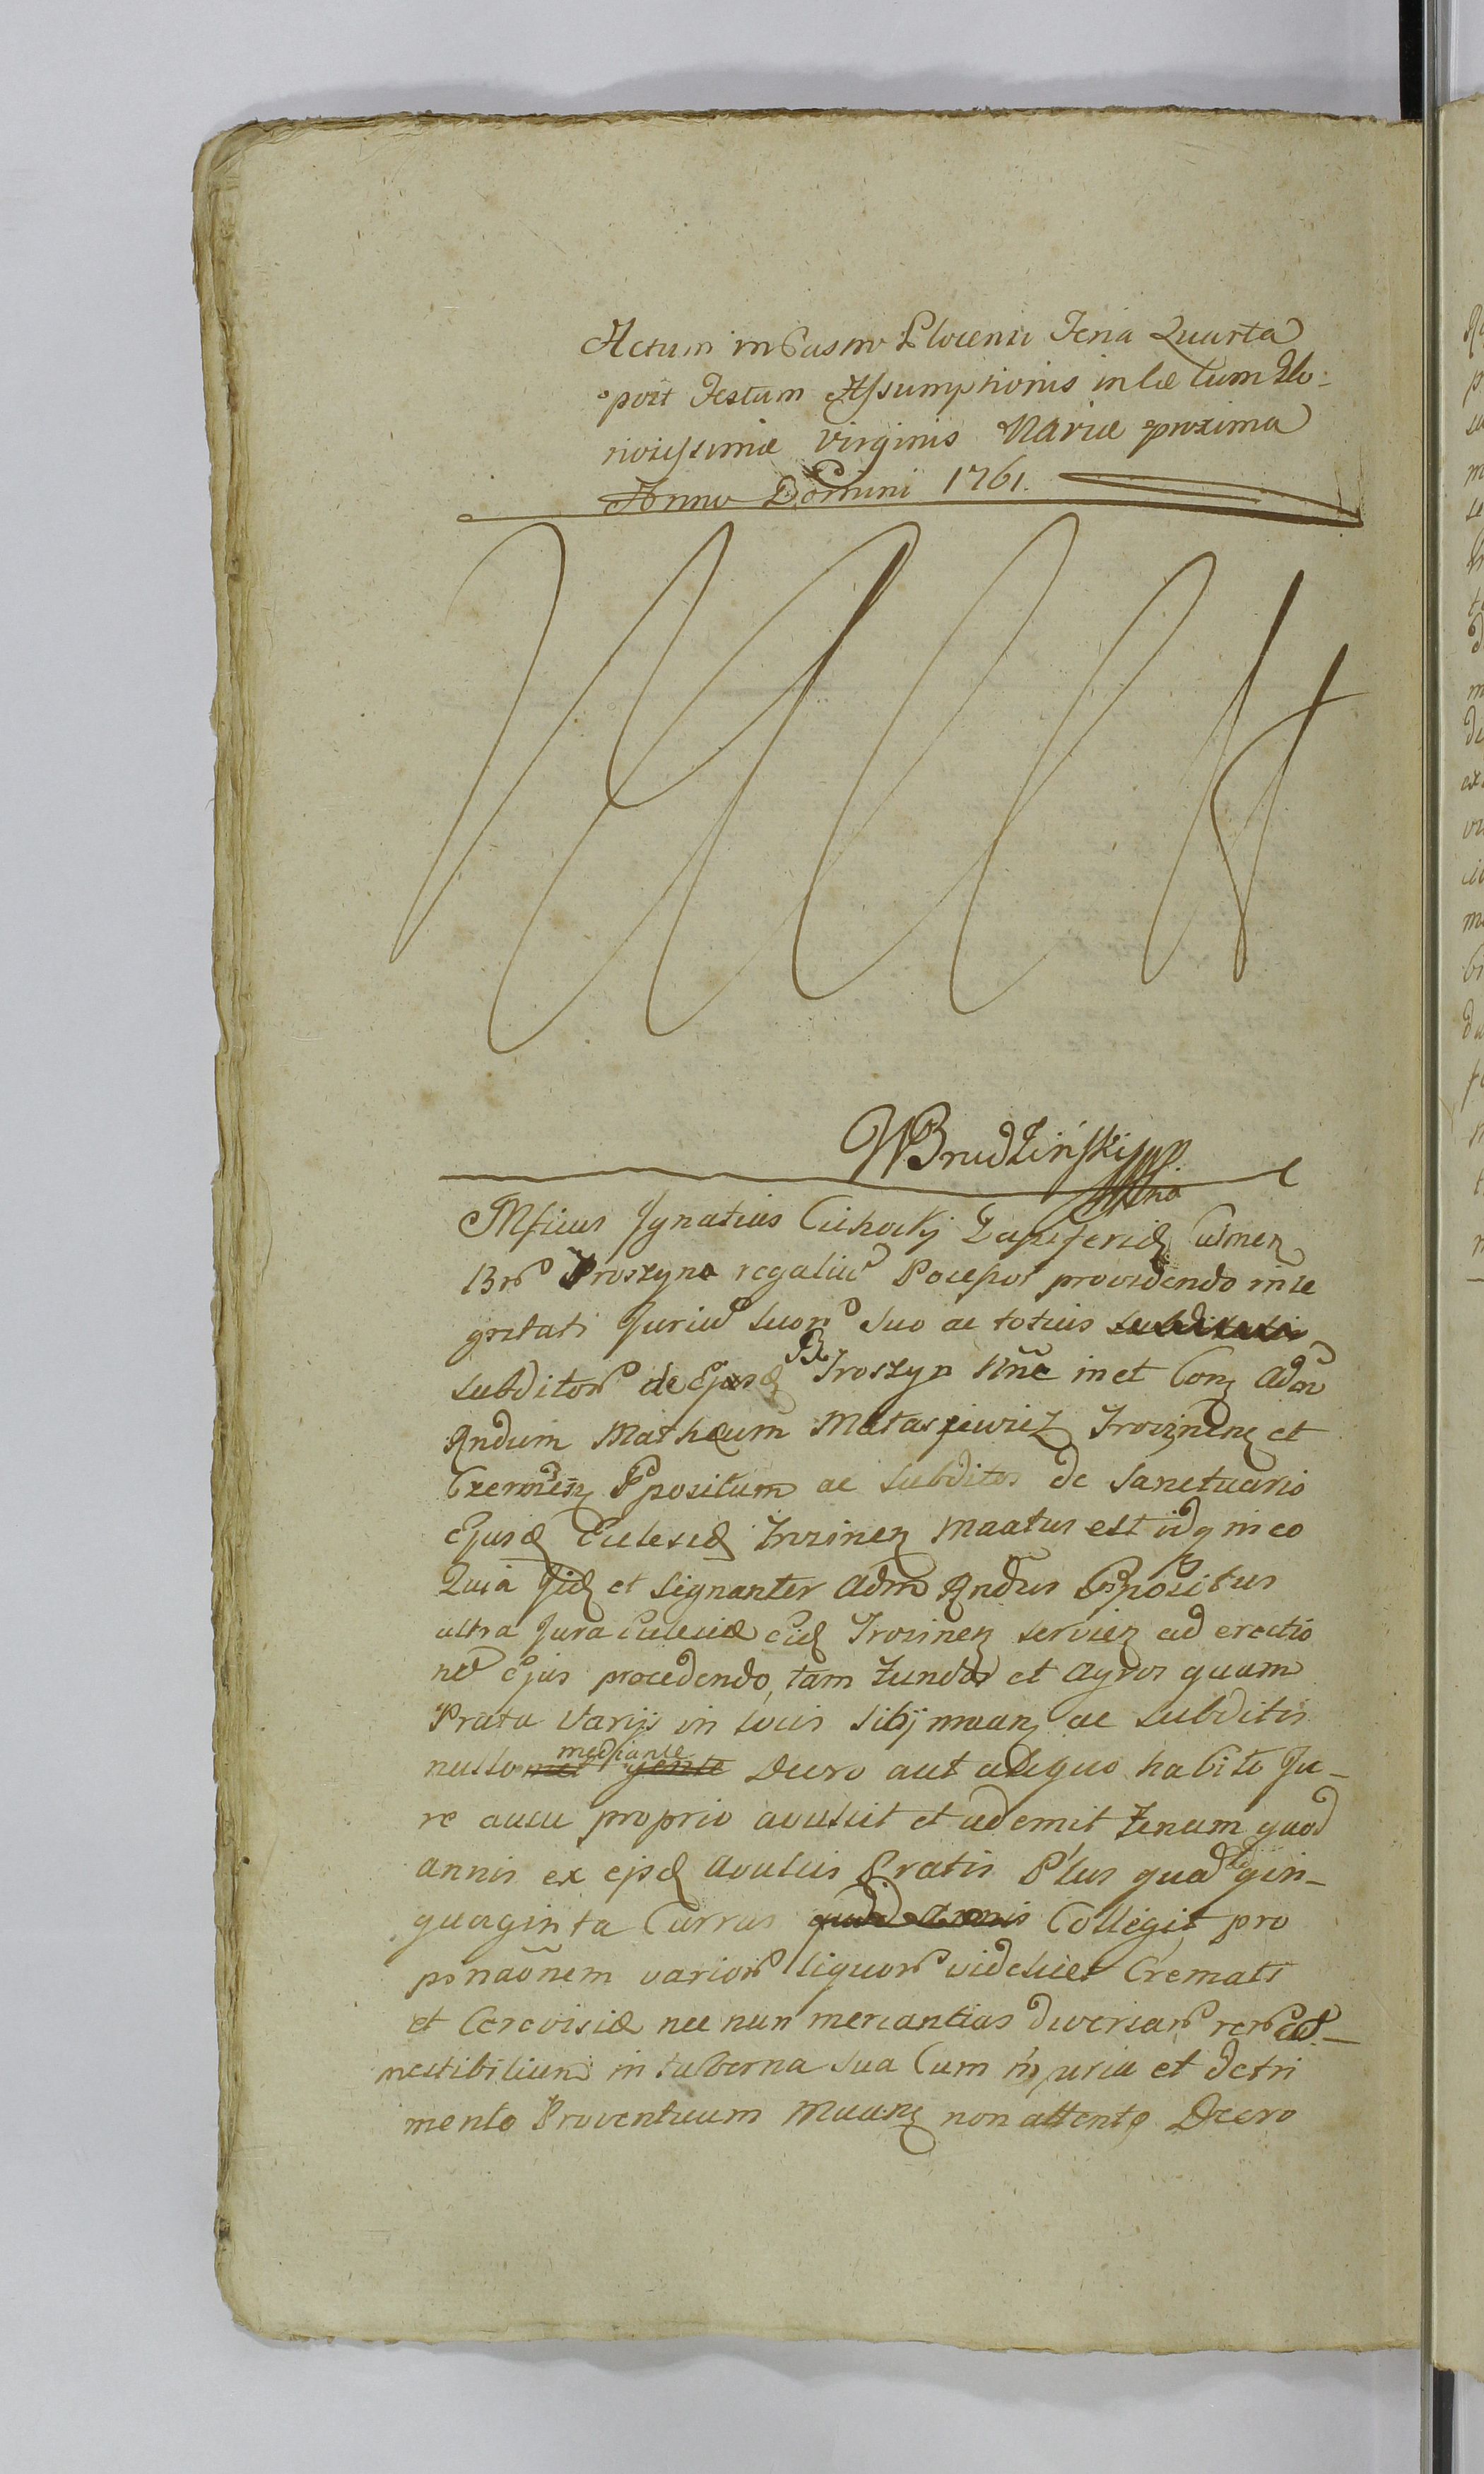 Actum in Castro Plocensi Feria Quarta
post Festum Assumptionis in Cælum Glo-
riosissimæ Virginis Mariæ proxima
Anno Domini 1761.
WBrudzińskimpp.
Mficus Ignatius Cichocky Dapiferid Culmen
Bnr Troszyna regaliu Possessor providendo inte
gritati Juriu suor suo ac totius
subditor de Ejusd B Troszyn nne inet Con Adm
Rndum Mathæum Mataszewicz Trosinen et
Czermen Ppositum ac subditos de Sanctuario
Ejusd Ecclesid Trosinen Maatus est idq in eo
Quia Jid et signanter Adm Rndus Ppositus
ultra Jura Ecclesiæ Eid Trosinen servien ad erectio
ne Ejus procedendo, tam fundos et Agros quam
Prata Varijs in locis Sibj maan ac subditis
nullo mediante Decro aut aliquo habito Ju-
re ausu proprio avulsit et ademit fenum quod
annis ex ejsd avulsis Pratis Plus quadgin-
quaginta Currus quod annis Collegit pro
pinaõnem varior liquor videlicet Cremati
et Cerevisiæ nec non mercantias diversar rer
mestibilium in taberna sua Cum injuria et detri
mento Proventuum Maan non attento Decro